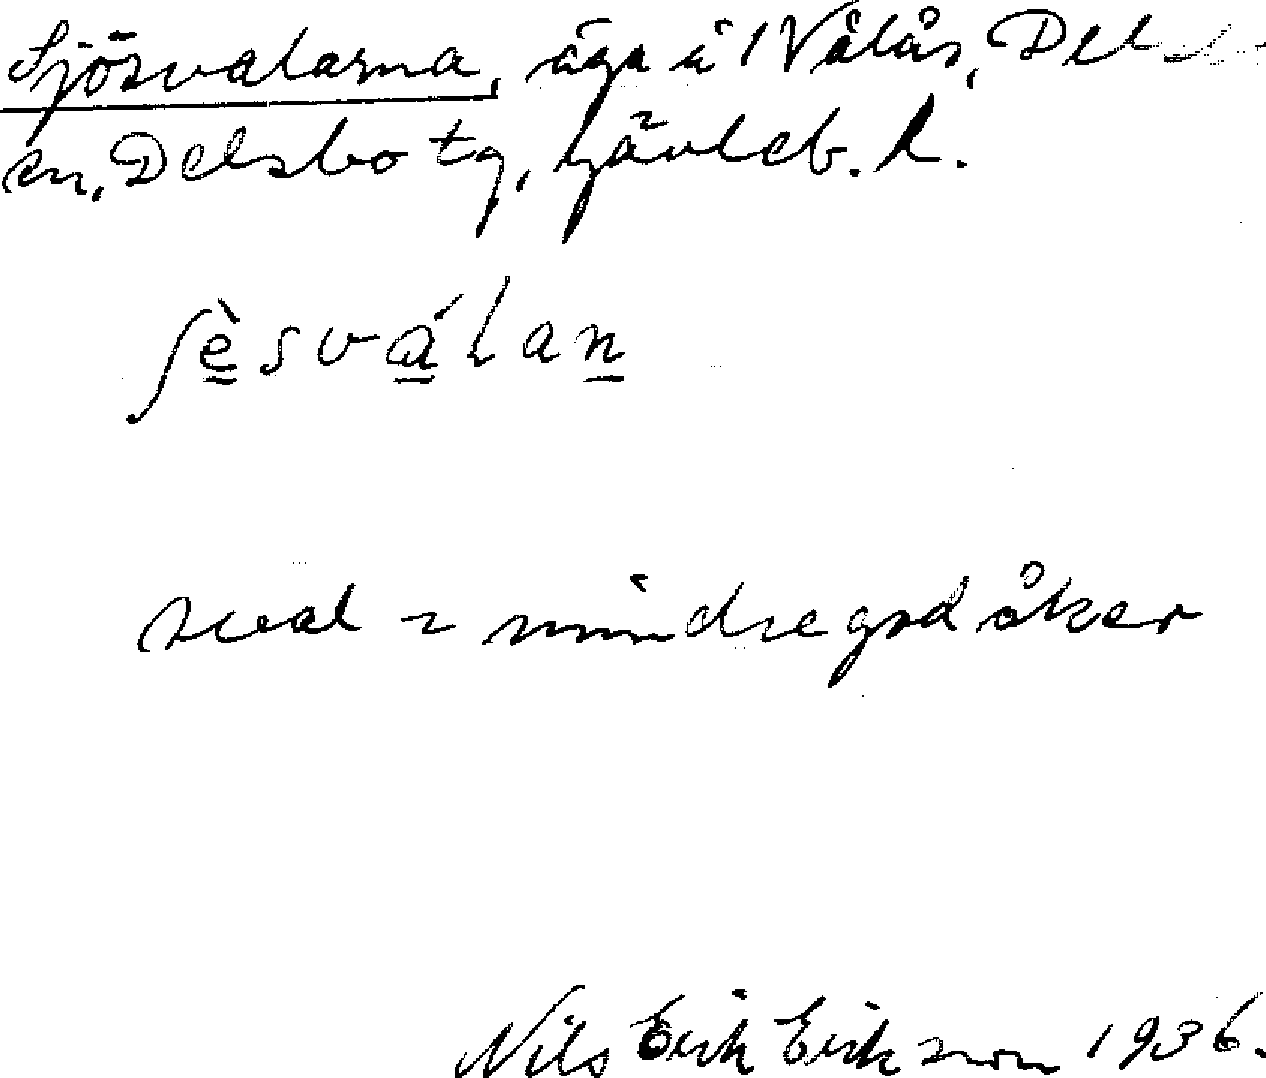 Sjösvalarna, äga i 1 Vålås, Dels-
en, Delsbo tg, Gävleb. l.
ʃèsválan
sval = mindre god åker
Nils Erik Eriksson 1936.